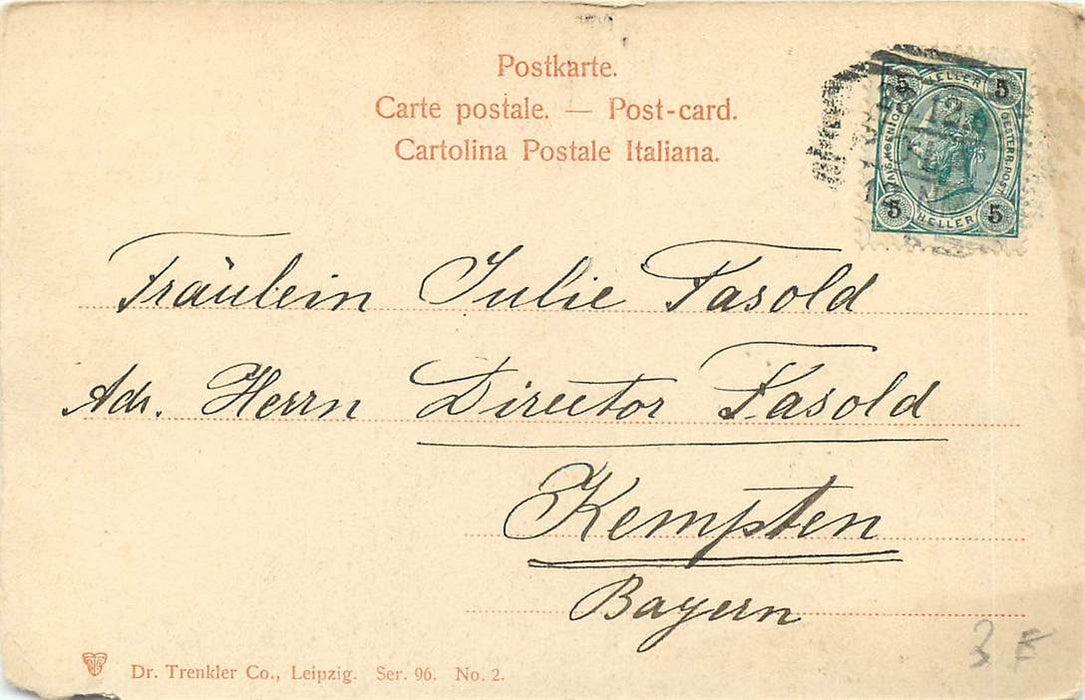 Postkarte.
Carte postale. — Post-card.
Cartolina Postale Italiana.
5 HELLER 5
OESTERR. POST.
5 HELLER 5
12
Fräulein Julie Fasold
Adr. Herrn Director Fasold
Kempten
Bayern
3 F
Dr. Trenkler Co., Leipzig. Ser. 96. No. 2.